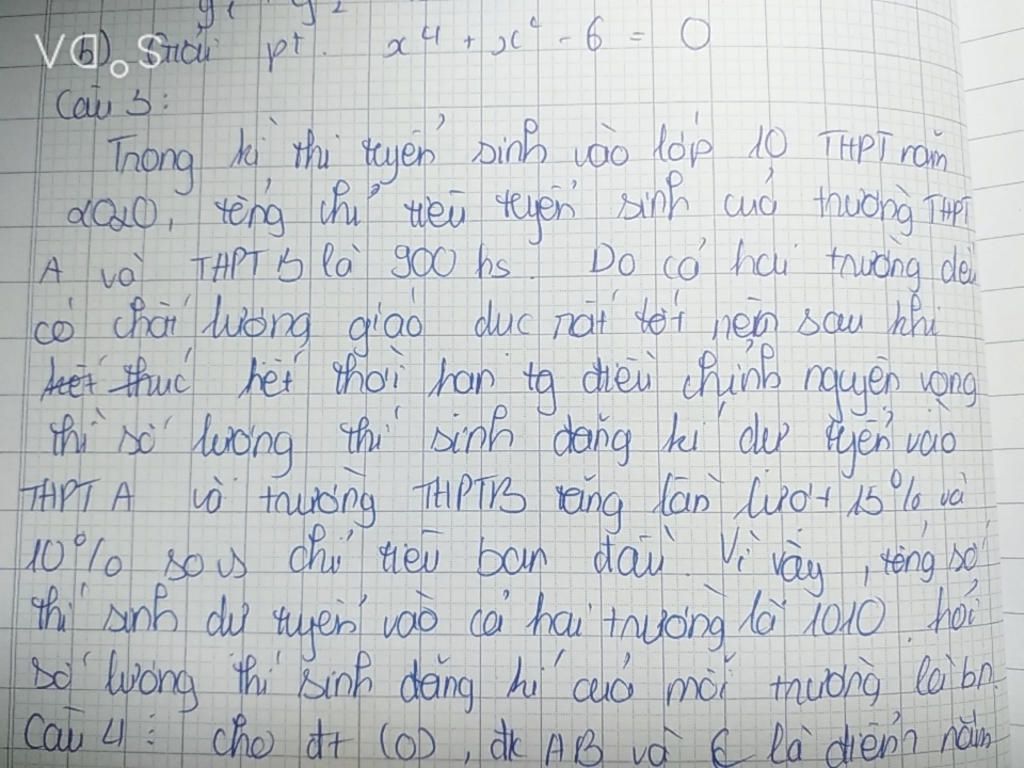 b) Giải pt. x⁴ + x² - 6 = 0
VD.S
Câu 3:
Trong kì thi tuyển sinh vào lớp 10 THPT năm
2020, tổng chỉ tiêu tuyển sinh cuả trường THPT
A và THPT B là 900 hs. Do cả hai trường đều
có chất lượng giáo dục rất tốt nên sau khi
kết thúc hết thời hạn tg điều chỉnh nguyện vọng
thì số lượng thí sinh đăng kí dự tuyển vào
THPT A và trường THPTB tăng lần lượt 15% và
10% so vs chỉ tiêu ban đầu. Vì vậy, tổng số
thí sinh dự tuyển vào cả hai trường là 1010. hỏi
số lượng thí sinh đăng kí cuả mỗi trường là bn
Câu 4: cho đt (O), đk AB và E là điểm nằm